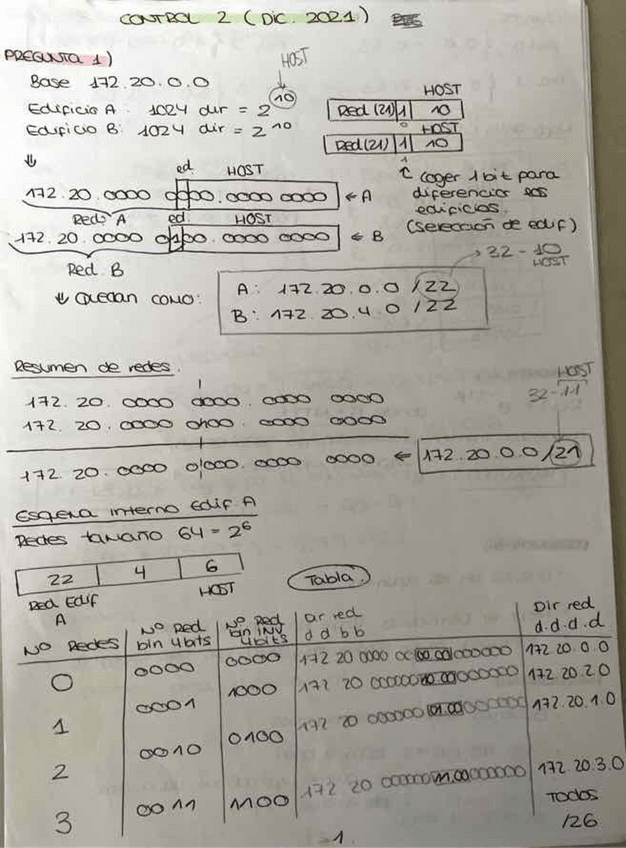 CONTROL 2 (DIC. 2021)
PREGUNTA 1)
HOST
Base 172.20.0.0
Edificio A: 1024 dir = 2 10
Edificio B: 1024 dir = 2 10
HOST
Red (21) 1 10
0
HOST
Red (21) 1 10
1
↑ Coger 1 bit para
diferenciar los
edificios.
(Selección de edif)
⇓
ed. HOST
172.20.0000 0000.0000 0000 ← A
Red A ed. HOST
172.20.0000 0100.0000 0000 ← B
Red B
32 - 10
HOST
⇓ Quedan como:
A: 172.20.0.0 /22
B: 172.20.4.0 /22
Resumen de redes.
172.20.0000 0000.0000 0000
172.20.0000 0100.0000 0000
172.20.0000 0000.0000 0000 ← 172.20.0.0/21
HOST
32-11
Esquema interno Edif A
Redes tamaño 64 = 2 6
22 4 6
Red Edif A HOST
Tabla.
Nº Redes Nº Red bin 4bits Nº Red bin INV 4bits Dir red d d b b Dir red d.d.d.d
0 0000 0000 172 20 0000 00 00 00 000000 172 20.0.0
1 0001 1000 172 20 000000 10 00 000000 172.20.2.0
2 0010 0100 172 20 000000 01.00 000000 172.20.1.0
3 0011 1100 172 20 000000 11.00 000000 172.20.3.0
Todos
/26
1.